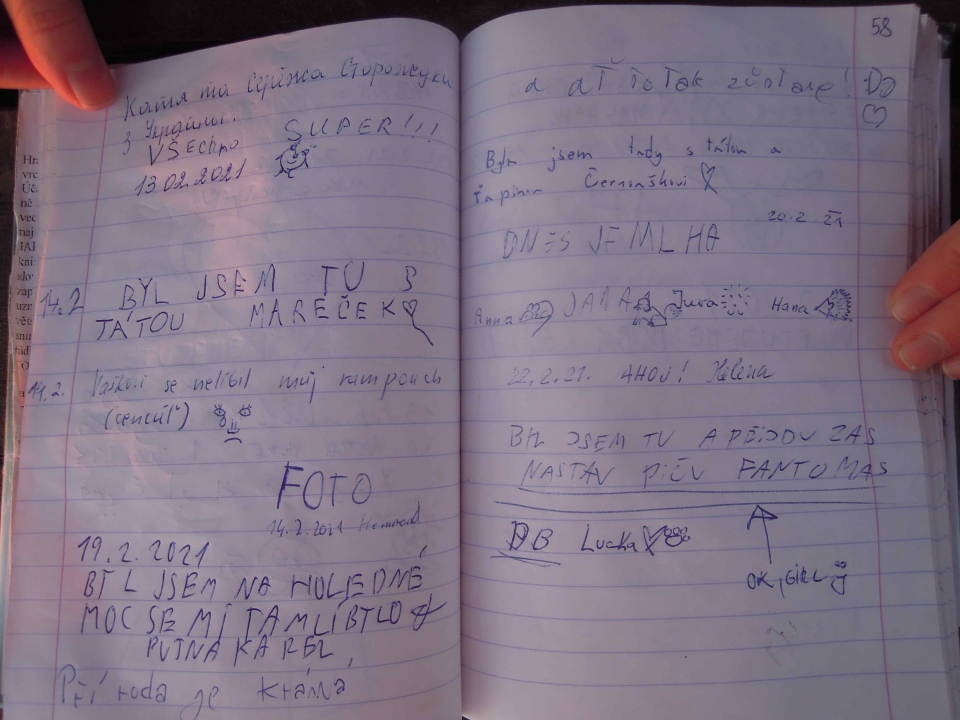 Катя та Сергійка Сторожуки
з України.
VŠECHNO SUPER!!!
13.02.2021
14.2 BYL JSEM TU S
TÁTOU MAREČEK
14.2. se nelíbil můj rampouch
(cencúl")
FOTO
14.2.2021
19.2.2021
BYL JSEM NA HOLEDNÉ
MOC SE MI TAM LÍBILO
PUTNA KAREL
Příroda je krásná
58
a ať to tak zůstane! Do
Byla jsem tady s tátou a
Černouškovi
20.2 21
DNES JE MLHA
Anna JANA Jura Hana
22.2.21. AHOJ! Helena
BYL JSEM TU A PŘIJDU ZAS
NASTAV PIČU FANTOMAS
DB Lucka
OK,